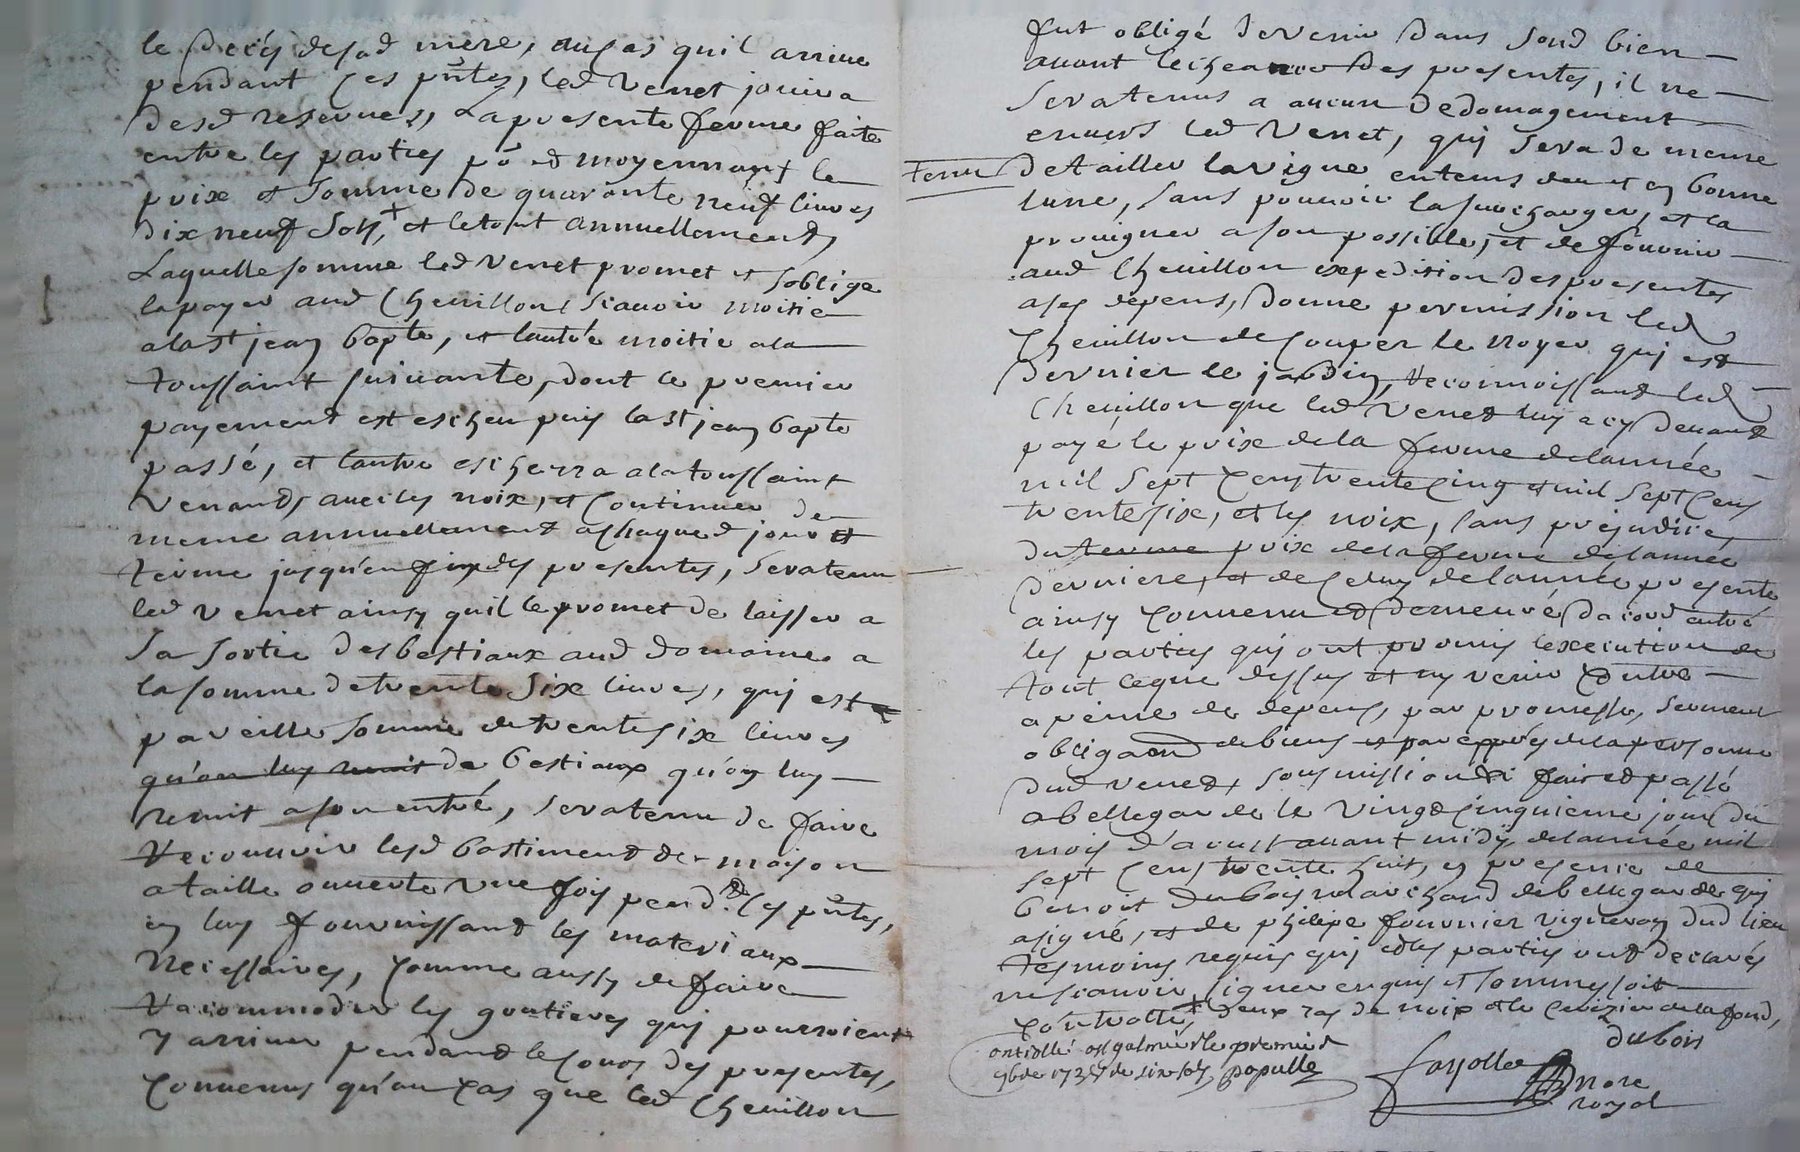 le Decés desad mere, aucas quil arrive
pendant ces pntes, led Venet jouira
desd reserves, La presente ferme faite
entre les parties pō et moyennant le
prix et somme de quarante neuf livres
Dix neuf sols, + et letout annuellement,
Laquelle somme led Venet promet et soblige
la payer aud Chevillon scavoir moitie
a la st jean bapte, et lautre moitie a la
toussaint suivante, dont le premier
payement est escheu puis la st jean bapte
passé, et lautre escherra a la toussaint
venant, avec les noix, et continuer de
meme annuellement a chaque jour et
terme jusqu'en fin des presentes, sera tenu
led Venet ainsy quil le promet de laisser a
sa sortie des bestiaux aud domaine a
la somme de trente six livres, qui est
pareille somme de trente six livres
qu'on luy remit de bestiaux qu'on luy
remit a son entré, sera tenu de faire
recouvrir lesd bastiments de maison
a taille ouverte une fois pendt ces pntes,
en luy fournissant les materiaux
necessaires, comme aussy de faire
racommoder les goutieres qui pourroient
y arriver pendant le cours des presentes,
convenus qu'au cas que led Chevillon
fut obligé de venir dans sond bien
avant lecheance des presentes, il ne
sera tenus a aucun dedomagement
envers led Venet, qui sera de meme
tenu de tailler la vigne en tems deu et en bonne
lune, sans pouvoir la surcharger, et la
provigner a son possible, et de fournir
aud Chevillon expedition des presentes
a ses depens, donne permission led
Chevillon de couper le noyer qui est
derrier le jardin, reconnoissant led
Chevillon que led Venet luy a cy devant
payé le prix de la ferme de lannée
mil sept cens trente cinq et mil sept cens
trente six, et les noix, sans prejudice
du terme prix de la ferme de lannée
derniere, et de celuy de lannée presente
ainsy convenu et demeuré dacord entre
les parties qui ont promis lexecution de
tout ceque dessus et ny venir contre
a peine de depens, par promesse, serment
obligaon de biens et par exprés de la personne
dud Venet, soumission &c fait et passé
a bellegarde le vingt cinquieme jour du
mois d'aoust avant midy de lannée mil
sept cens trente huit, en presence de
benoit dubois marchand de bellegarde qui
a signé, et de philipe fournier vigneron dud lieu
tesmoins requis qui et les parties ont declarés
ne scavoir signer enquis et sommés soit
controllé, + deux ras de noix et le
dubois
ontrollé a st galmier le premier
9bre 1738 de six sols populle
fayolle
nore
royal